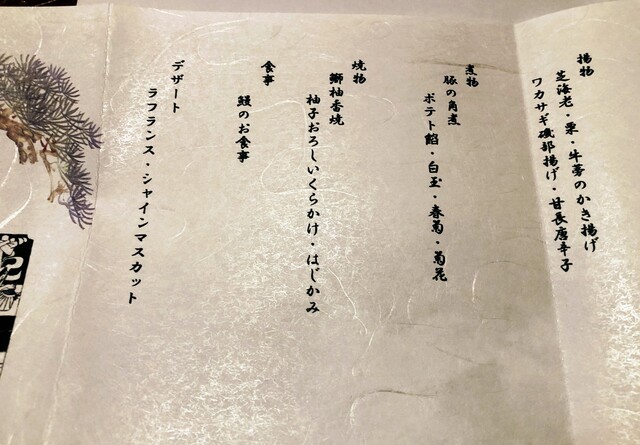 揚物
芝海老・栗・牛蒡のかき揚げ
ワカサギ磯部揚げ・甘長唐辛子
煮物
豚の角煮
ポテト餡・白玉・春菊・菊花
焼物
鰤柚香焼
柚子おろしいくらかけ・はじかみ
食事
鰻のお食事
デザート
ラフランス・シャインマスカット